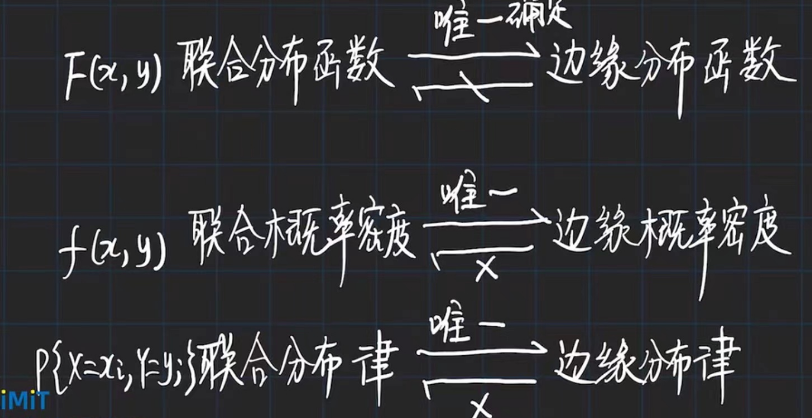 F(x,y) 联合分布函数 唯一确定 边缘分布函数
f(x,y) 联合概率密度 唯一 边缘概率密度 X
P{X=xi,Y=yj}联合分布律 唯一 边缘分布律 X
iMiT